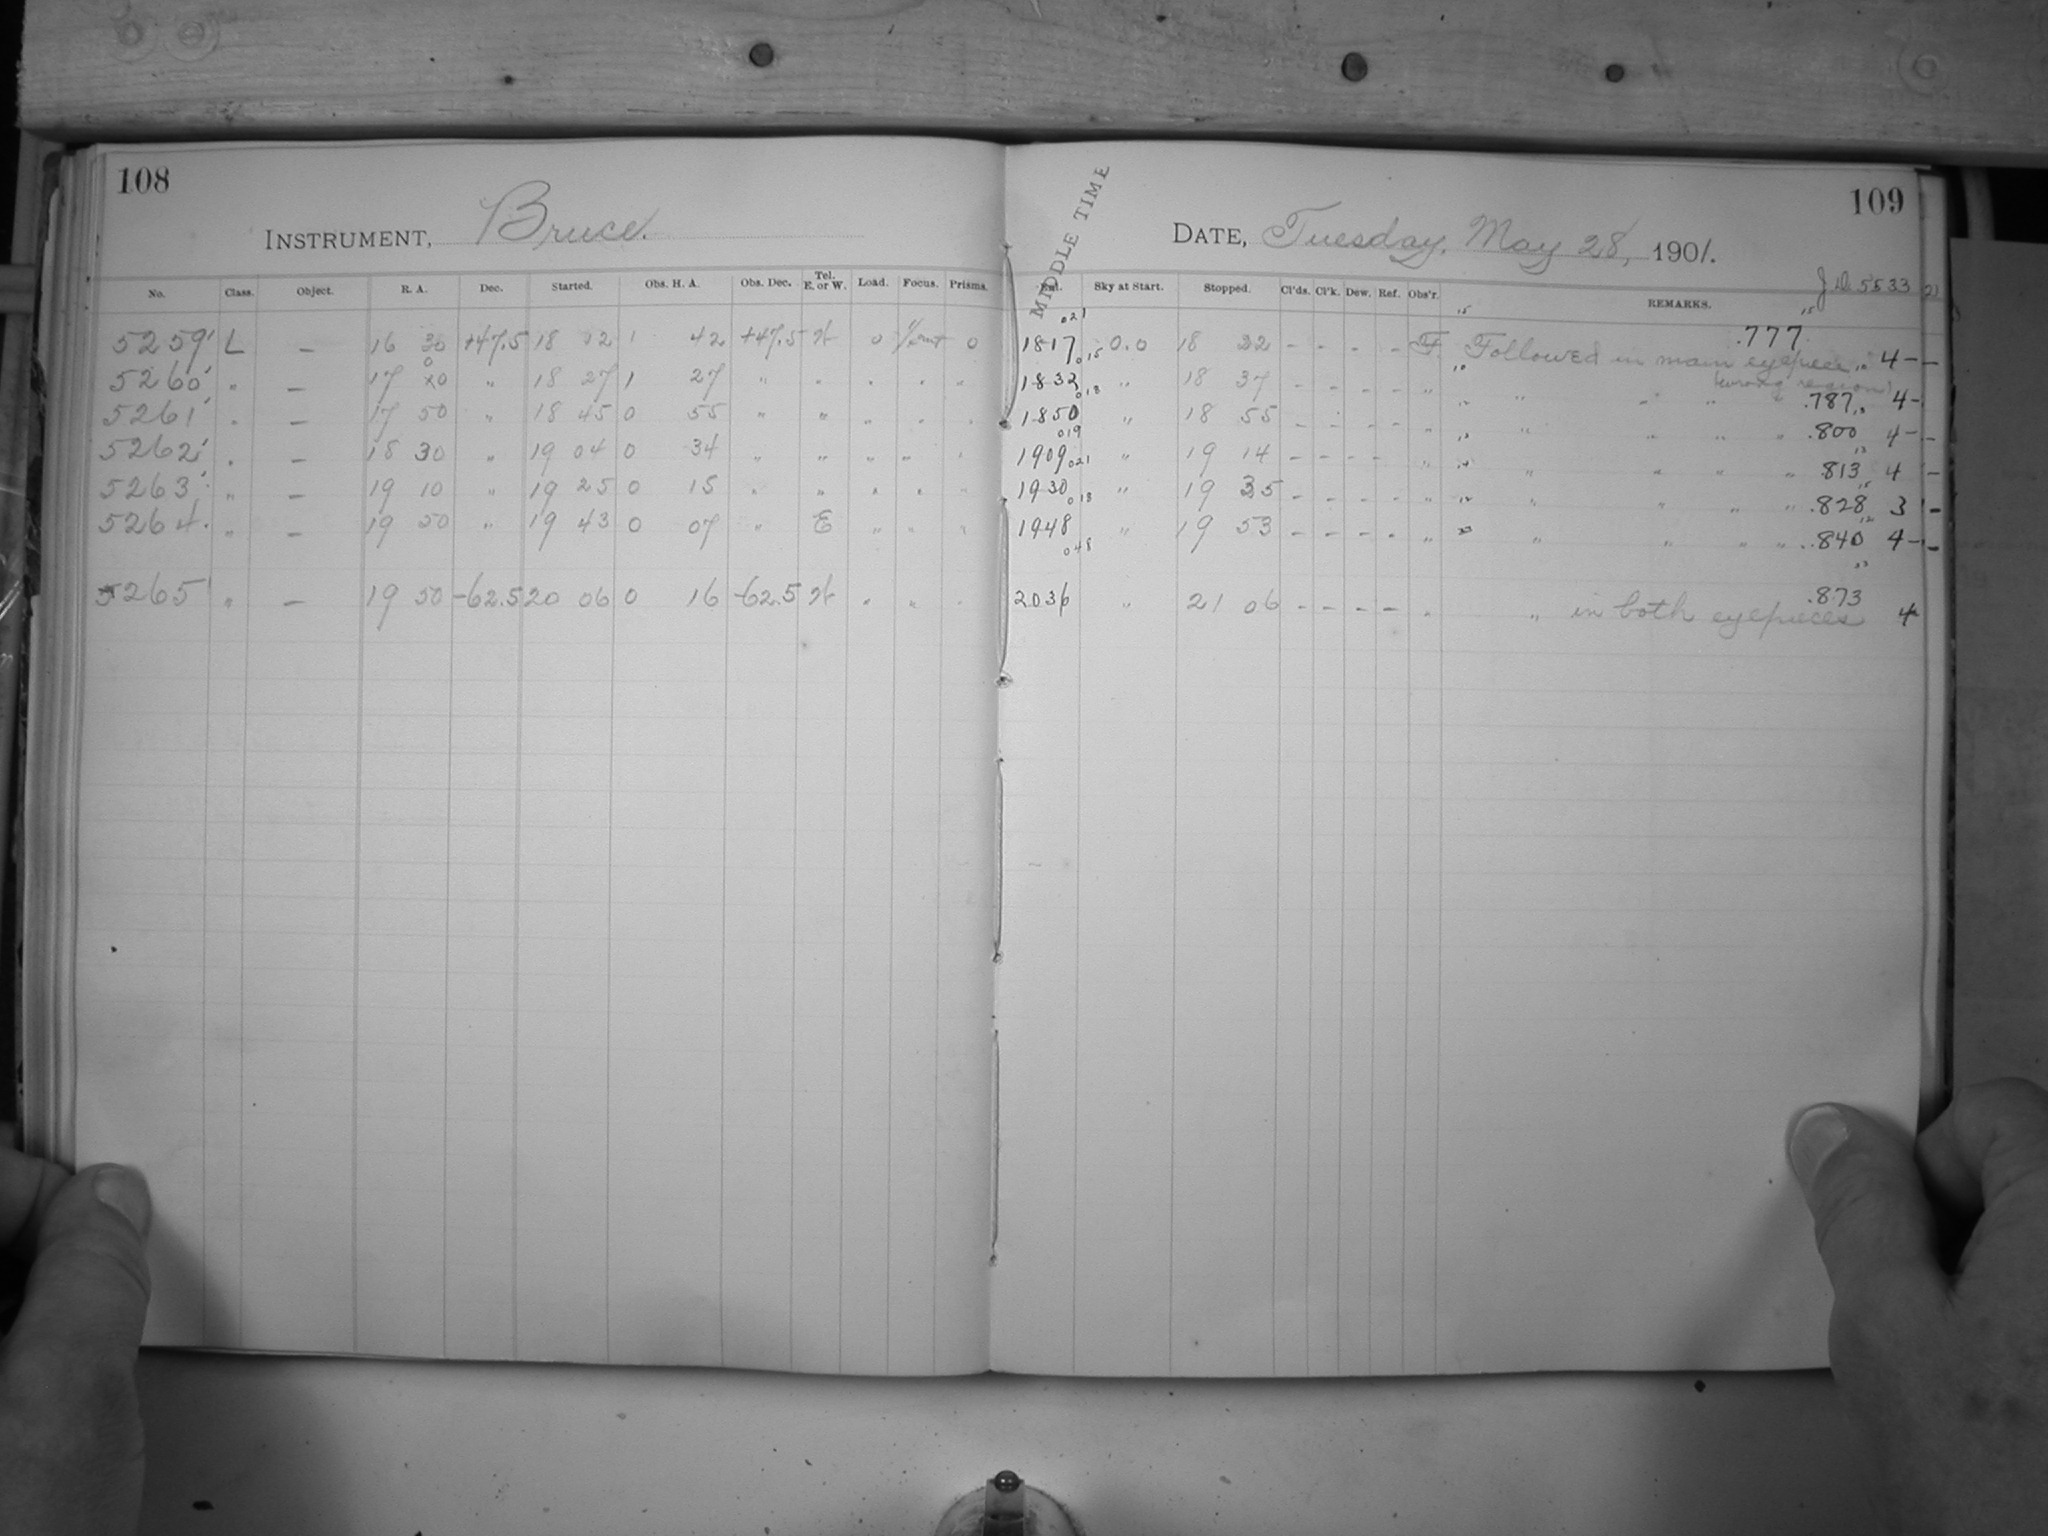 108
INSTRUMENT, Bruce.
No. Class. Object. R. A. Dec. Started. Obs. H. A. Obs. Dec. Tel. E. or W. Load. Focus. Prisms.
5259 L — 16 30 +47.5 18 02 1 42 +47.5 W 0 0
5260 " — 17 " 18 27 1 27 " " " " "
5261 " — 17 50 " 18 45 0 55 " " " " "
5262 " — 18 30 " 19 04 0 34 " " " " "
5263 " — 19 10 " 19 25 0 15 " " " " "
5264 " — 19 50 " 19 43 0 07 " E " " "
5265 " — 19 50 -62.5 20 06 0 16 -62.5 W " " "
109
MIDDLE TIME
DATE, Tuesday, May 28, 1901.
J.D. 5533
Sky at Start. Stopped. Cl'ds. Cl'k. Dew. Ref. Obs'r. REMARKS.
021
1817 0.0 18 32 - - - - F. Followed in main eyepiece .777 4-
015
1832 " 18 37 - - - - " (wrong region)
" " " .787 4-
018
1850 " 18 55 - - - - " " " " " .800 4-
019
1909 " 19 14 - - - - " " " " " .813 4
021
1930 " 19 35 - - - - " " " " " .828 3
018
1948 " 19 53 - - - - " " " " " .840 4-
048
2036 " 21 06 - - - - " " in both eyepieces .873 4